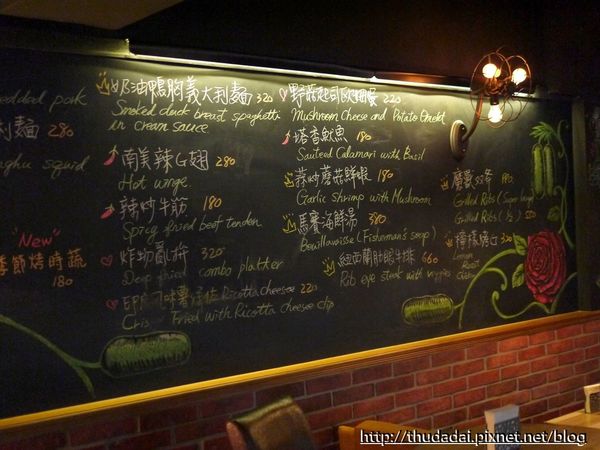 edded pork
利麵 280
nghu squid
"New"
季節烤時蔬
180
奶油鴨胸義大利麵 320
Smoked duck breast spaghetti
in cream sauce
南美辣G翅 280
Hot winge
辣炒牛筋 180
Spicy fried beef tenden
炸物亂拚 320
Deep fried combo platter
Ricotta cheese 220
Cris Fried with Ricotta cheese dip
野菇起司欧姆蛋 220
Mushroom Cheese and Potato Omelet
塔香魷魚 180
Sauteed Calamari with Basil
蒜炒蘑菇鮮蝦 180
Garlic Shrimp with Mushroom
馬賽海鮮湯 380
Bouillavaisse (Fisherman's soup)
紐西蘭肋眼牛排 660
Rib eye steak with veggies
Grilled Ribs
Grilled Ribs (½) 500
檸檬烤 320
Lemon
Roast
http://thudadai.pixnet.net/blog